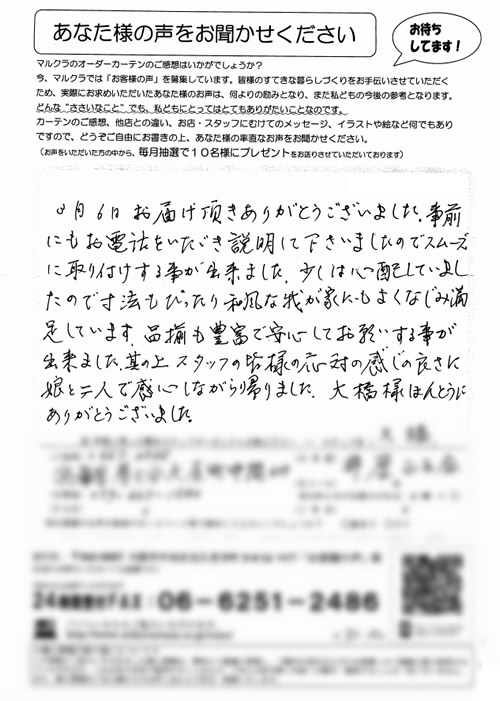 あなた様の声をお聞かせください
お待ち
してます!
マルクラのオーダーカーテンのご感想はいかがでしょうか?
今、マルクラでは「お客様の声」を募集しています。皆様のすてきな暮らしづくりをお手伝いさせていただく
ため、実際にお求めいただいたあなた様のお声は、何よりの励みとなり、また私どもの今後の参考となります。
どんな“ささいなこと”でも、私どもにとってはとてもありがたいことなのです。
カーテンのご感想、他店との違い、お店・スタッフにむけてのメッセージ、イラストや絵など何でもあり
ですので、どうぞご自由にお書きの上、あなた様の率直なお声をお聞かせください。
(お声をいただいた方の中から、毎月抽選で10名様にプレゼントをお送りさせていただいております)
月6日 お届け頂きありがとうございました。事前
にもお電話をいただき説明して下さいましたのでスムーズ
に取り付けする事が出来ました。少しは心配していまし
たので寸法もぴったり和風な我が家にもよくなじみ満
足しています。品揃も豊富で安心してお願いする事が
出来ました。其の上スタッフの皆様の応対の感じの良さに
娘と二人で感心しながら帰りました。大橋様ほんとうに
ありがとうございました。
24時間受付FAX:06-6251-2486